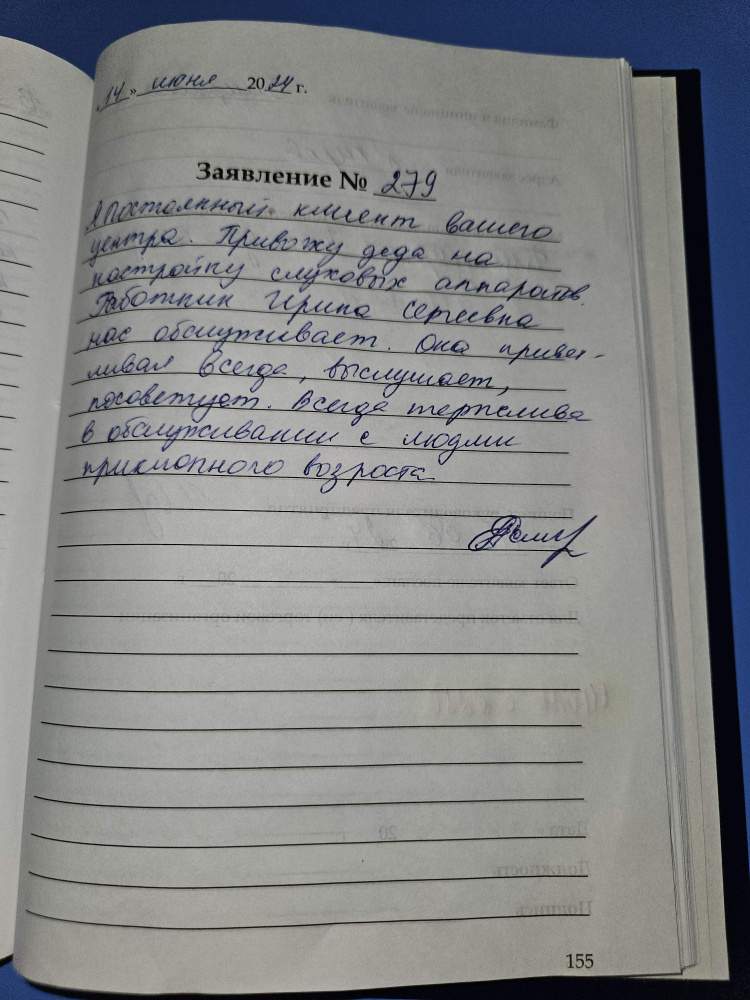 „14" июня 2024 г.
Заявление № 279
Я Постоянный клиент вашего
центра. Привожу деда на
настройку слуховых аппаратов.
Работник Ирина Сергеевна
нас обслуживает. Она привет-
ливая всегда, выслушает,
посоветует. Всегда терпелива
в обслуживании с людми
приклонного возроста.
155